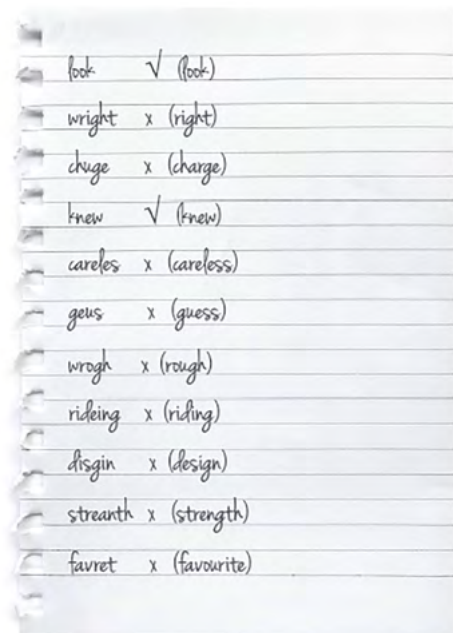 look √ (look)
wright x (right)
chuge x (charge)
knew √ (knew)
careles x (careless)
geus x (guess)
wrogh x (rough)
rideing x (riding)
disgin x (design)
streanth x (strength)
favret x (favourite)